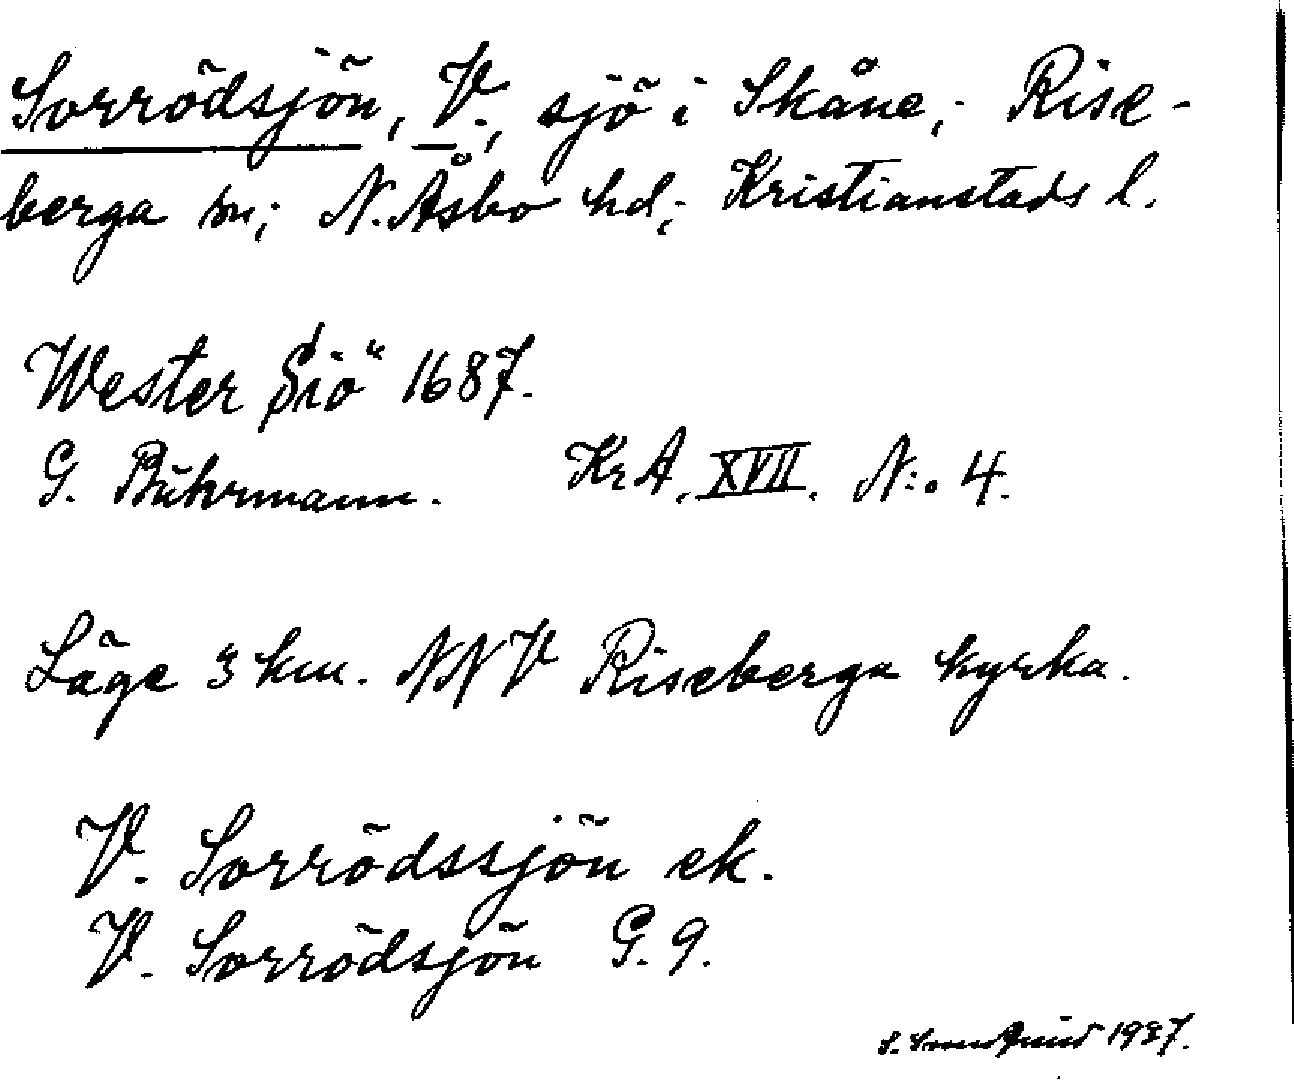 Sorrödsjön, V., sjö i Skåne; Rise-
berga sn; N. Åsbo hd; Kristianstads l.
Wester Siö 1687.
G. Buhrmann. Kr A. XVII. N:o 4.
Läge 3 km. NNV Riseberga kyrka.
V. Sorrödssjön ek.
V. Sorrödsjön G. 9.
S. 1927.